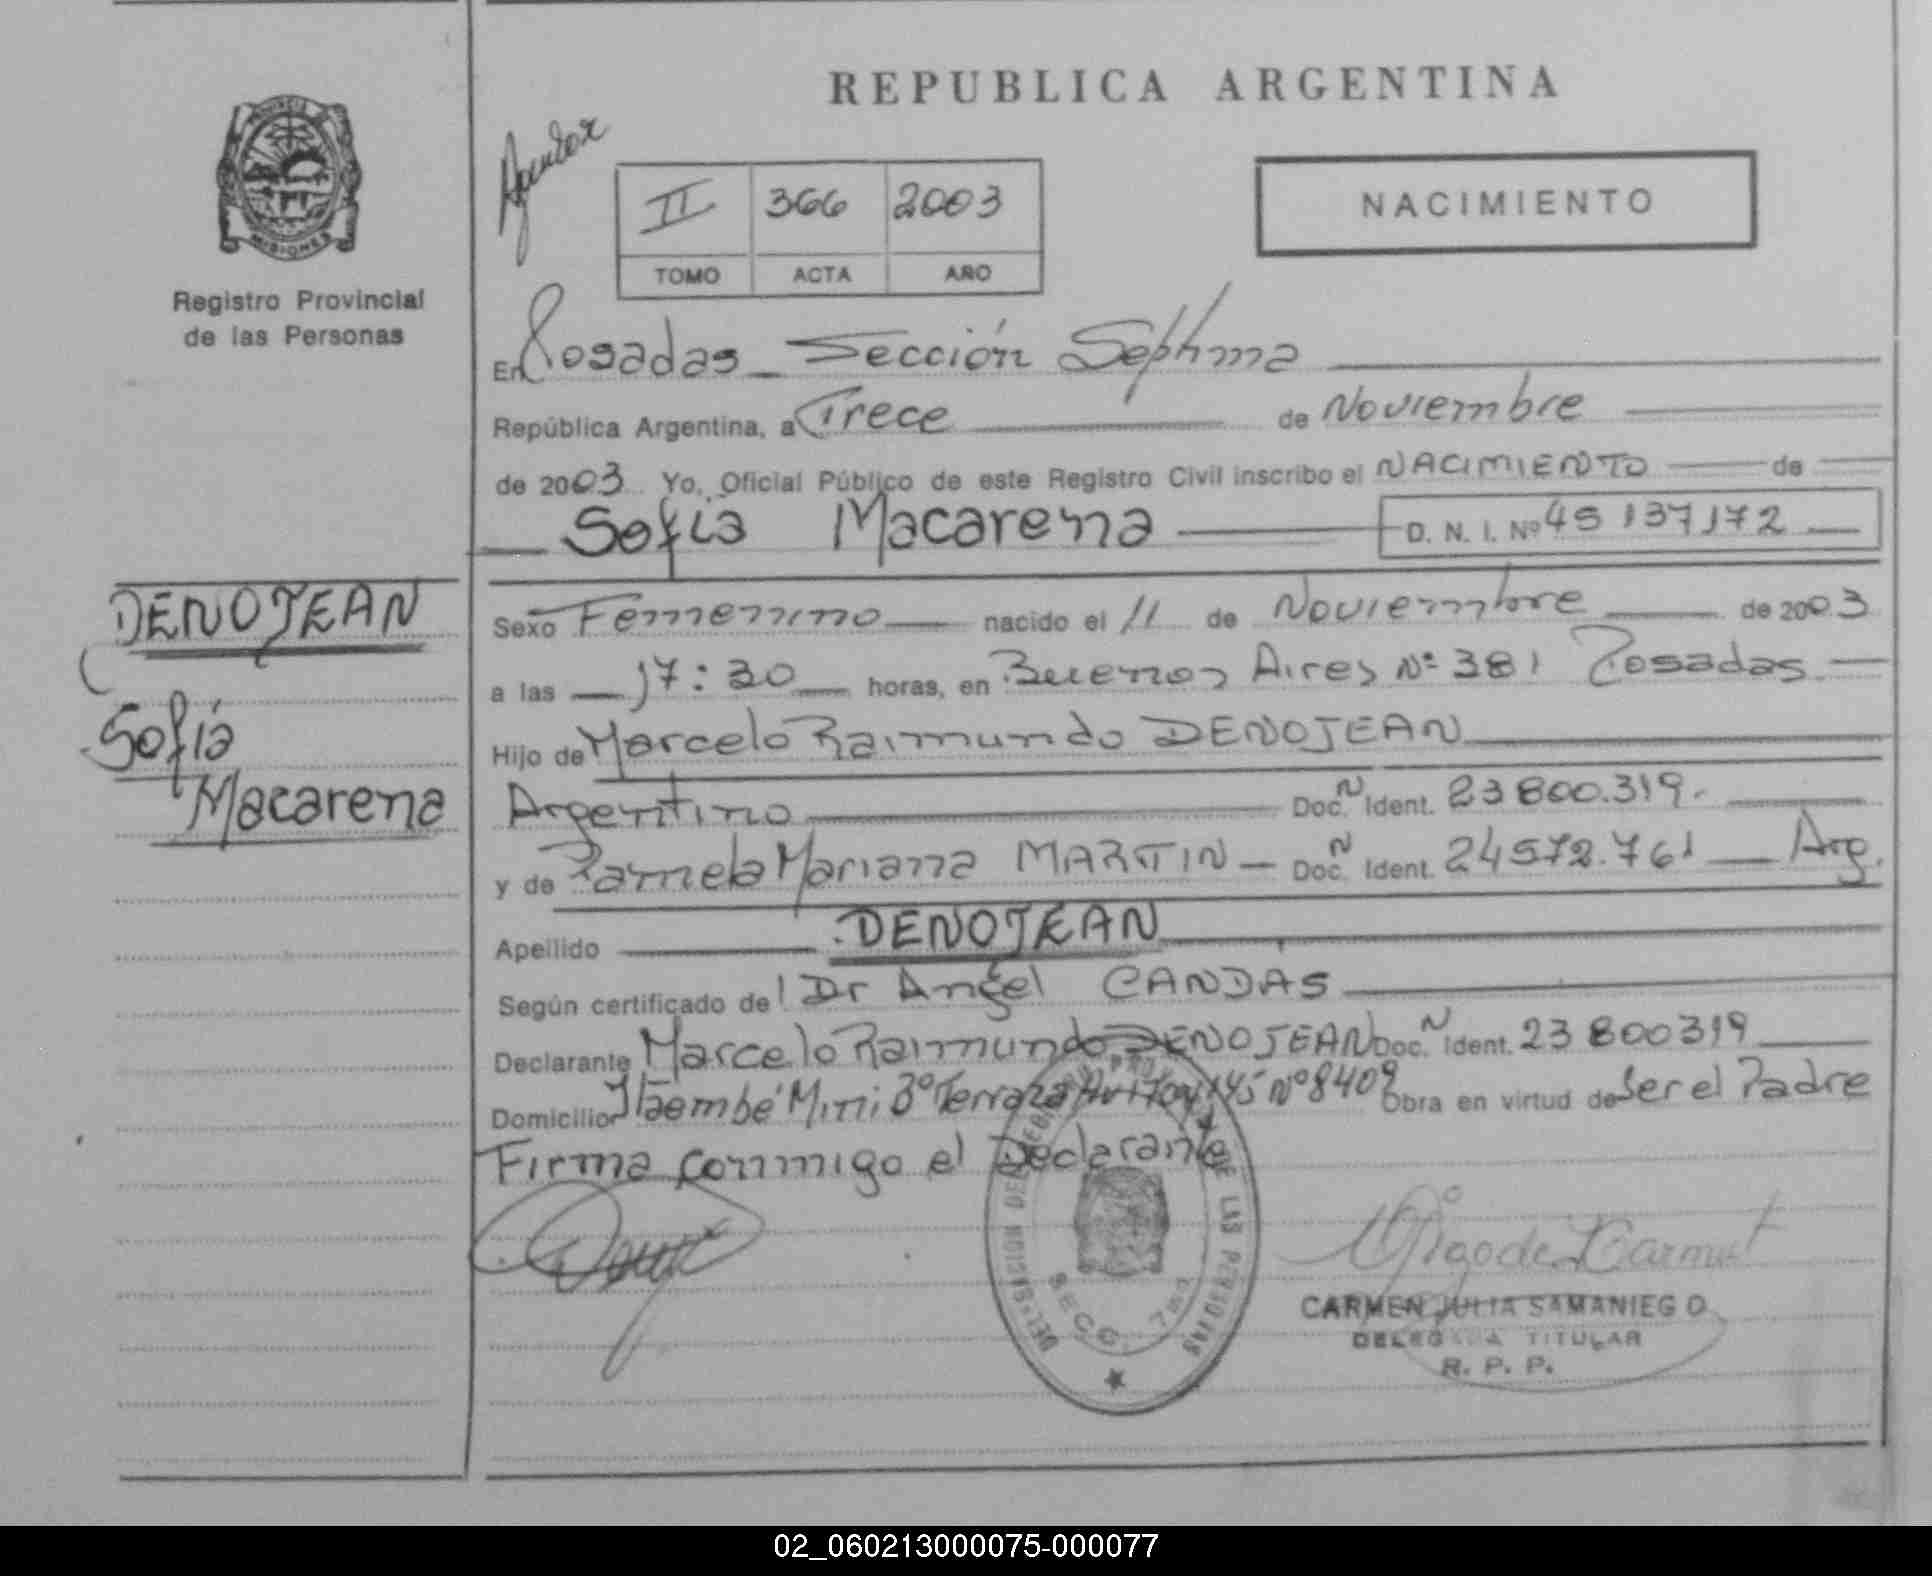 REPUBLICA ARGENTINA
PROVINCIA
MISIONES
Registro Provincial
de las Personas
II 366 2003
TOMO ACTA AÑO
NACIMIENTO
En Posadas - Sección Séptima
República Argentina, a Trece de Noviembre
de 2003 Yo, Oficial Público de este Registro Civil inscribo el NACIMIENTO de
Sofía Macarena D. N. I. Nº 45 137172
DENOJEAN
Sofía
Macarena
Sexo Femenino nacido el 11 de Noviembre de 2003
a las 17:30 horas, en Buenos Aires Nº 381 Posadas
Hijo de Marcelo Raimundo DENOJEAN
Argentino Doc. N Ident. 23 800.319.
y de Pamela Mariana MARTIN - Doc. N Ident. 24572.761 Arg.
Apellido DENOJEAN
Según certificado del Dr Angel CANDAS
Declarante Marcelo Raimundo DENOJEAN Doc. N Ident. 23 800319
Domicilio Itaembé Mini 3º Terraza Nº 8409 Obra en virtud de Ser el Padre
Firma conmigo el Declarante
DELEGACION DE LAS PERSONAS
SECC. 7ma
CARMEN JULIA SAMANIEGO
DELEGADA TITULAR
R. P. P.
02_060213000075-000077